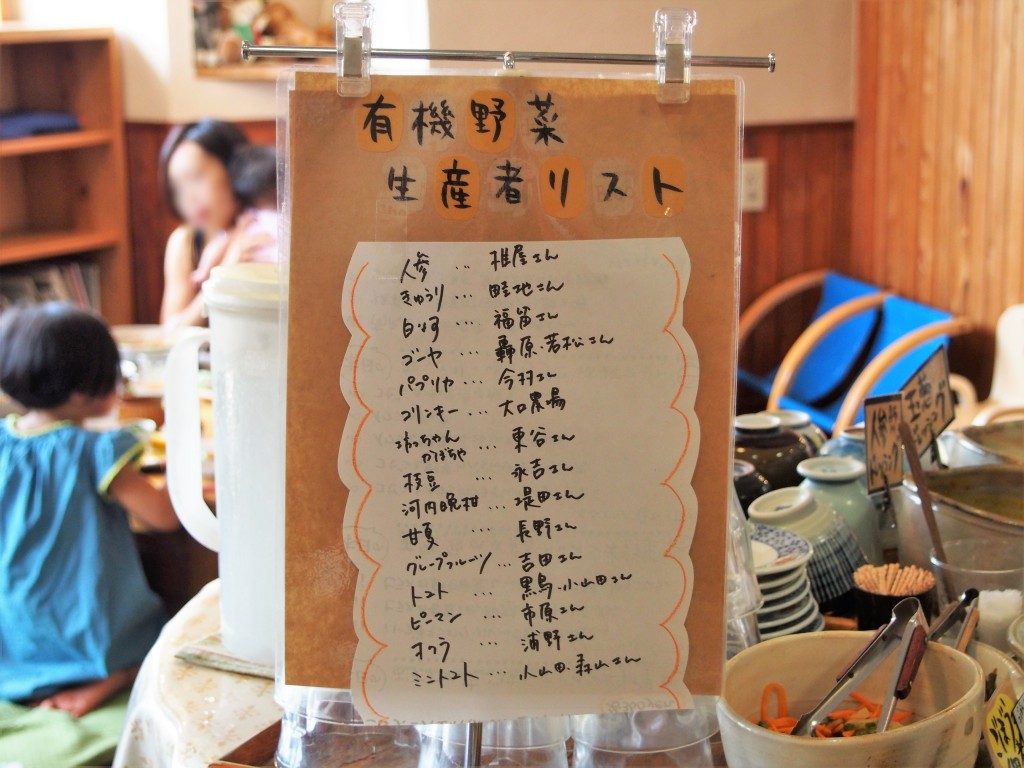 有機野菜
生産者リスト
人参 … 椎屋さん
きゅうり … 畦地さん
白いも … 福笛さん
ゴーヤ … 轟原、若松さん
パプリカ … 今村さん
コリンキー … 大口農場
坊っちゃん
かぼちゃ … 東谷さん
枝豆 … 永吉さん
河内晩柑 … 堤田さん
甘夏 … 長野さん
グレープフルーツ 吉田さん
トマト … 黒鳥、小山田さん
ピーマン … 市原さん
オクラ … 浦野さん
ミニトマト … 小山田、森山さん